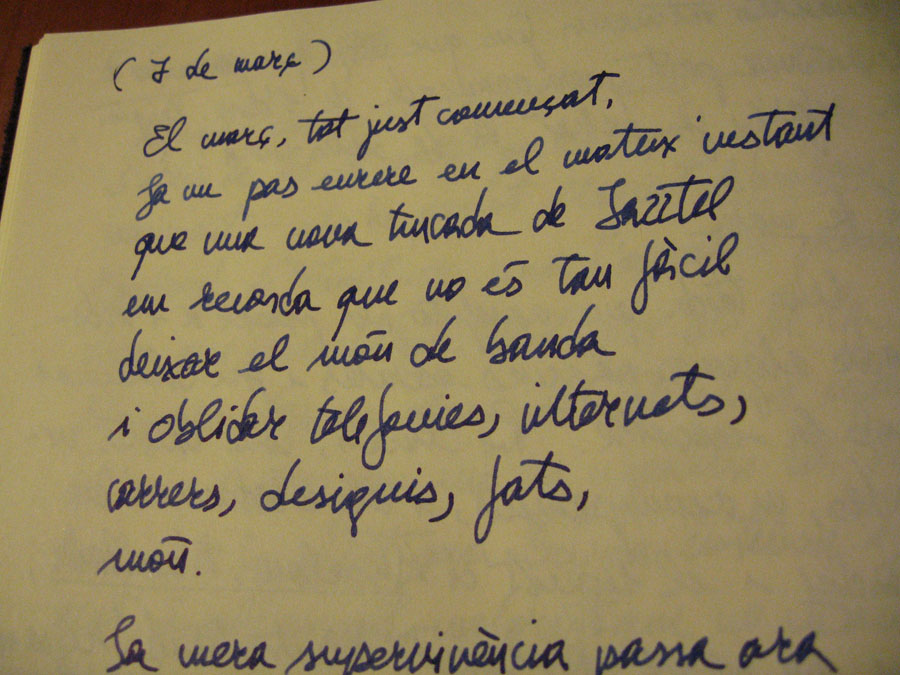 (7 de març)
El març, tot just començat,
fa un pas enrere en el mateix instant
que una nova trucada de Jazztel
em recorda que no és tan fàcil
deixar el món de banda
i oblidar telefonies, internets,
carrers, desiguis, fats,
món.
La mera supervivència passa ara